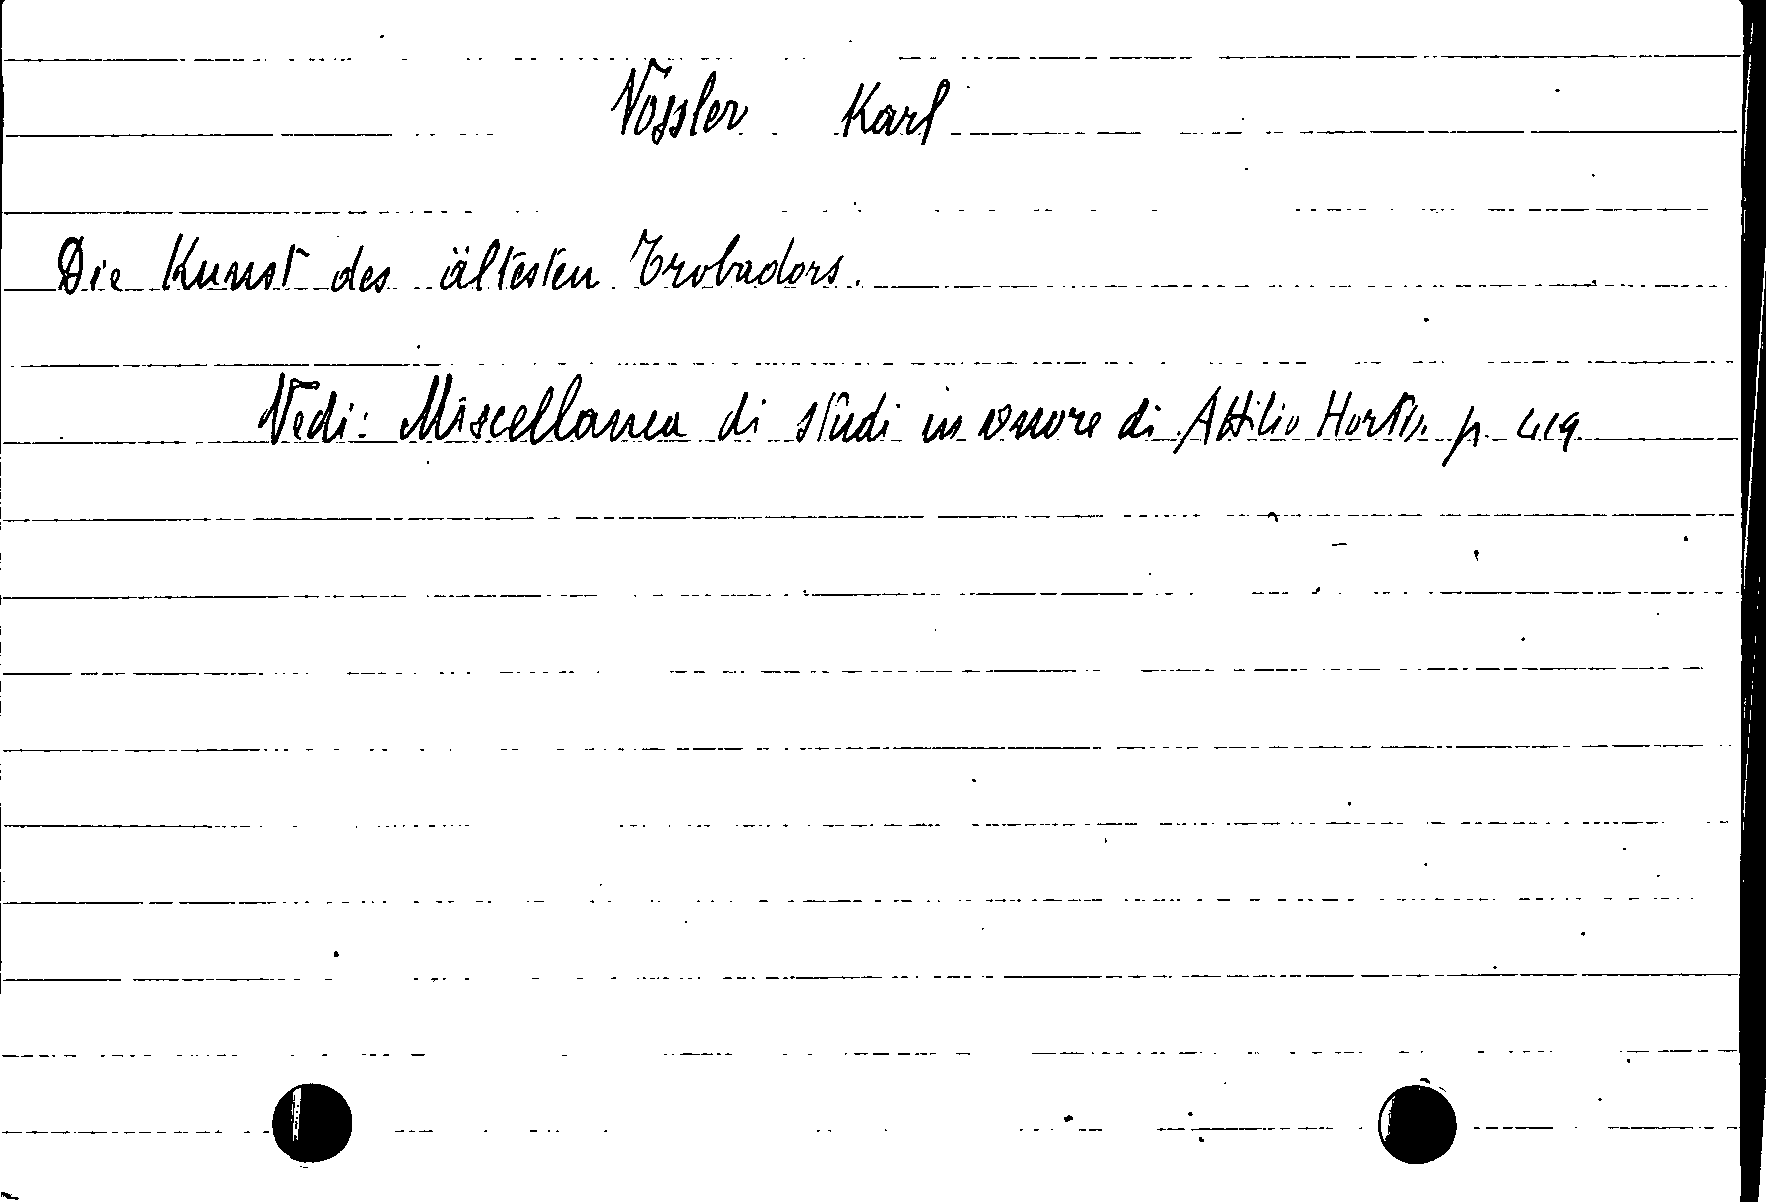 Vossler Karl
Die Kunst des ältesten Trobadors.
Vedi: Miscellanea di studi in onore di Attilio Hortis. p. 419